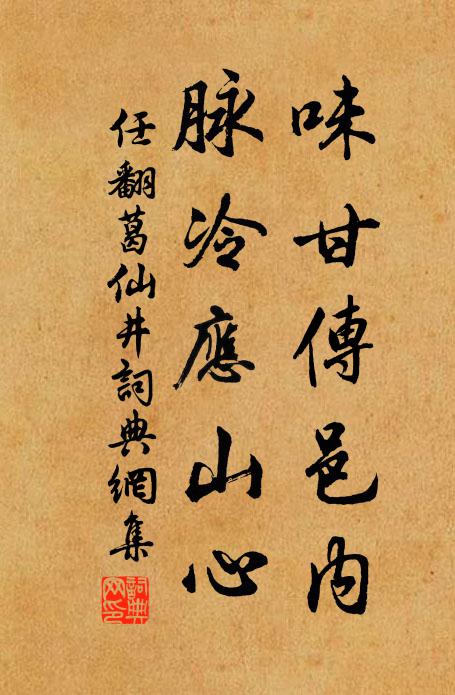 味甘傳邑内
脉冷應山心
任翻葛仙井詞典網集
詞典网印